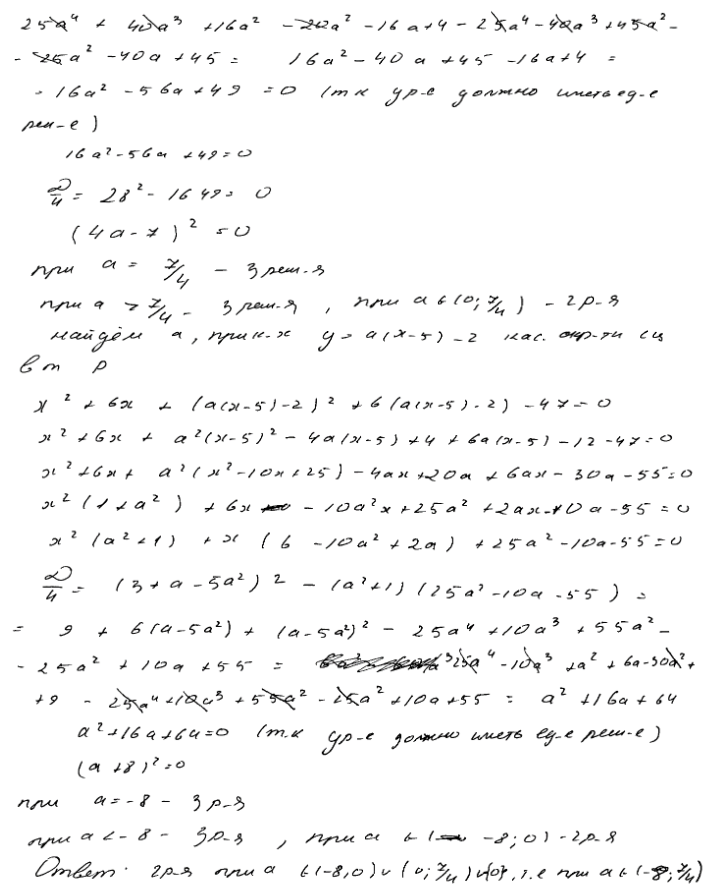 25a⁴ + 40a³ + 16a² - 20a² - 16a + 4 - 25a⁴ - 40a³ + 45a² -
- 25a² - 40a + 45 = 16a² - 40a + 45 - 16a + 4 =
= 16a² - 56a + 49 = 0 (т.к ур-е должно иметь ед-е
реш-е)
16a² - 56a + 49 = 0
D/4 = 28² - 16 49 = 0
(4a - 7)² = 0
при a = 7/4 - 3 реш-я
при a > 7/4 - 3 реш-я, при a ∈ (0; 7/4) - 2р-я
найдём a, при к-х y = a(x-5) - 2 кас. окр-ти с ц
в т P
x² + 6x + (a(x-5)-2)² + 6(a(x-5)-2) - 47 = 0
x² + 6x + a²(x-5)² - 4a(x-5) + 4 + 6a(x-5) - 12 - 47 = 0
x² + 6x + a²(x² - 10x + 25) - 4ax + 20a + 6ax - 30a - 55 = 0
x²(1 + a²) + 6x - 10a²x + 25a² + 2ax - 10a - 55 = 0
x²(a² + 1) + x(6 - 10a² + 2a) + 25a² - 10a - 55 = 0
D/4 = (3 + a - 5a²)² - (a² + 1)(25a² - 10a - 55) =
= 9 + 6(a - 5a²) + (a - 5a²)² - 25a⁴ + 10a³ + 55a² -
- 25a² + 10a + 55 = 25a⁴ - 10a³ + a² + 6a - 30a² +
+ 9 - 25a⁴ + 10a³ + 55a² - 25a² + 10a + 55 = a² + 16a + 64
a² + 16a + 64 = 0 (т.к ур-е должно иметь ед-е реш-е)
(a + 8)² = 0
при a = -8 - 3 р-я
при a < -8 - 3р-я, при a ∈ (-8; 0) - 2р-я
Ответ: 2р-я при a ∈ (-8; 0) ∪ (0; 7/4) ∪ {0}, т.е при a ∈ (-8; 7/4)